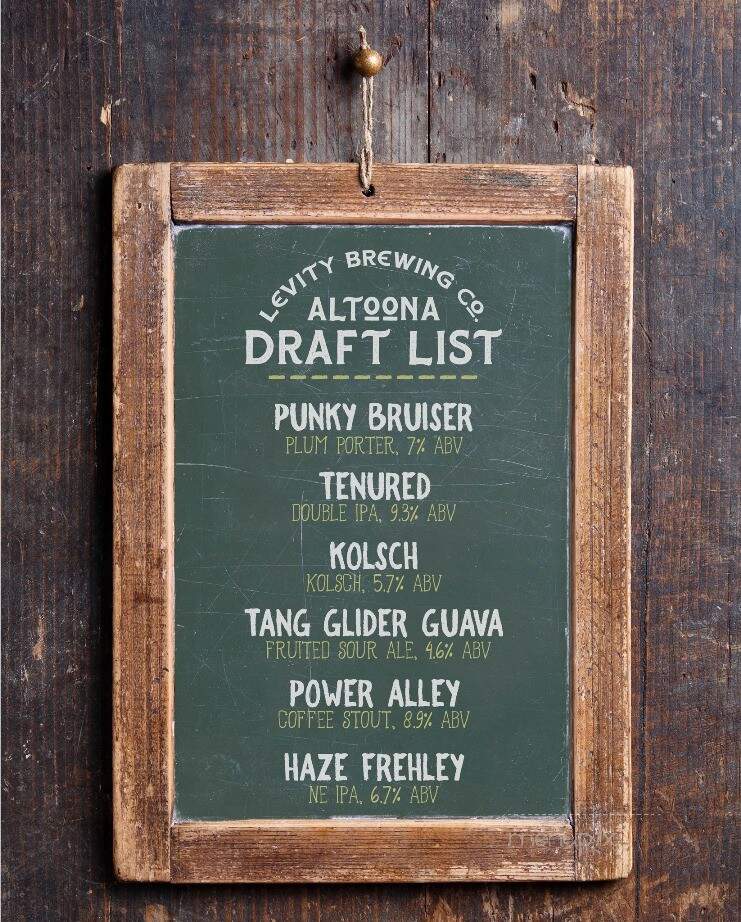 LEVITY BREWING CO.
ALTOONA
DRAFT LIST
PUNKY BRUISER
PLUM PORTER, 7% ABV
TENURED
DOUBLE IPA, 9.3% ABV
KOLSCH
KOLSCH, 5.7% ABV
TANG GLIDER GUAVA
FRUITED SOUR ALE, 4.6% ABV
POWER ALLEY
COFFEE STOUT, 8.9% ABV
HAZE FREHLEY
NE IPA, 6.7% ABV